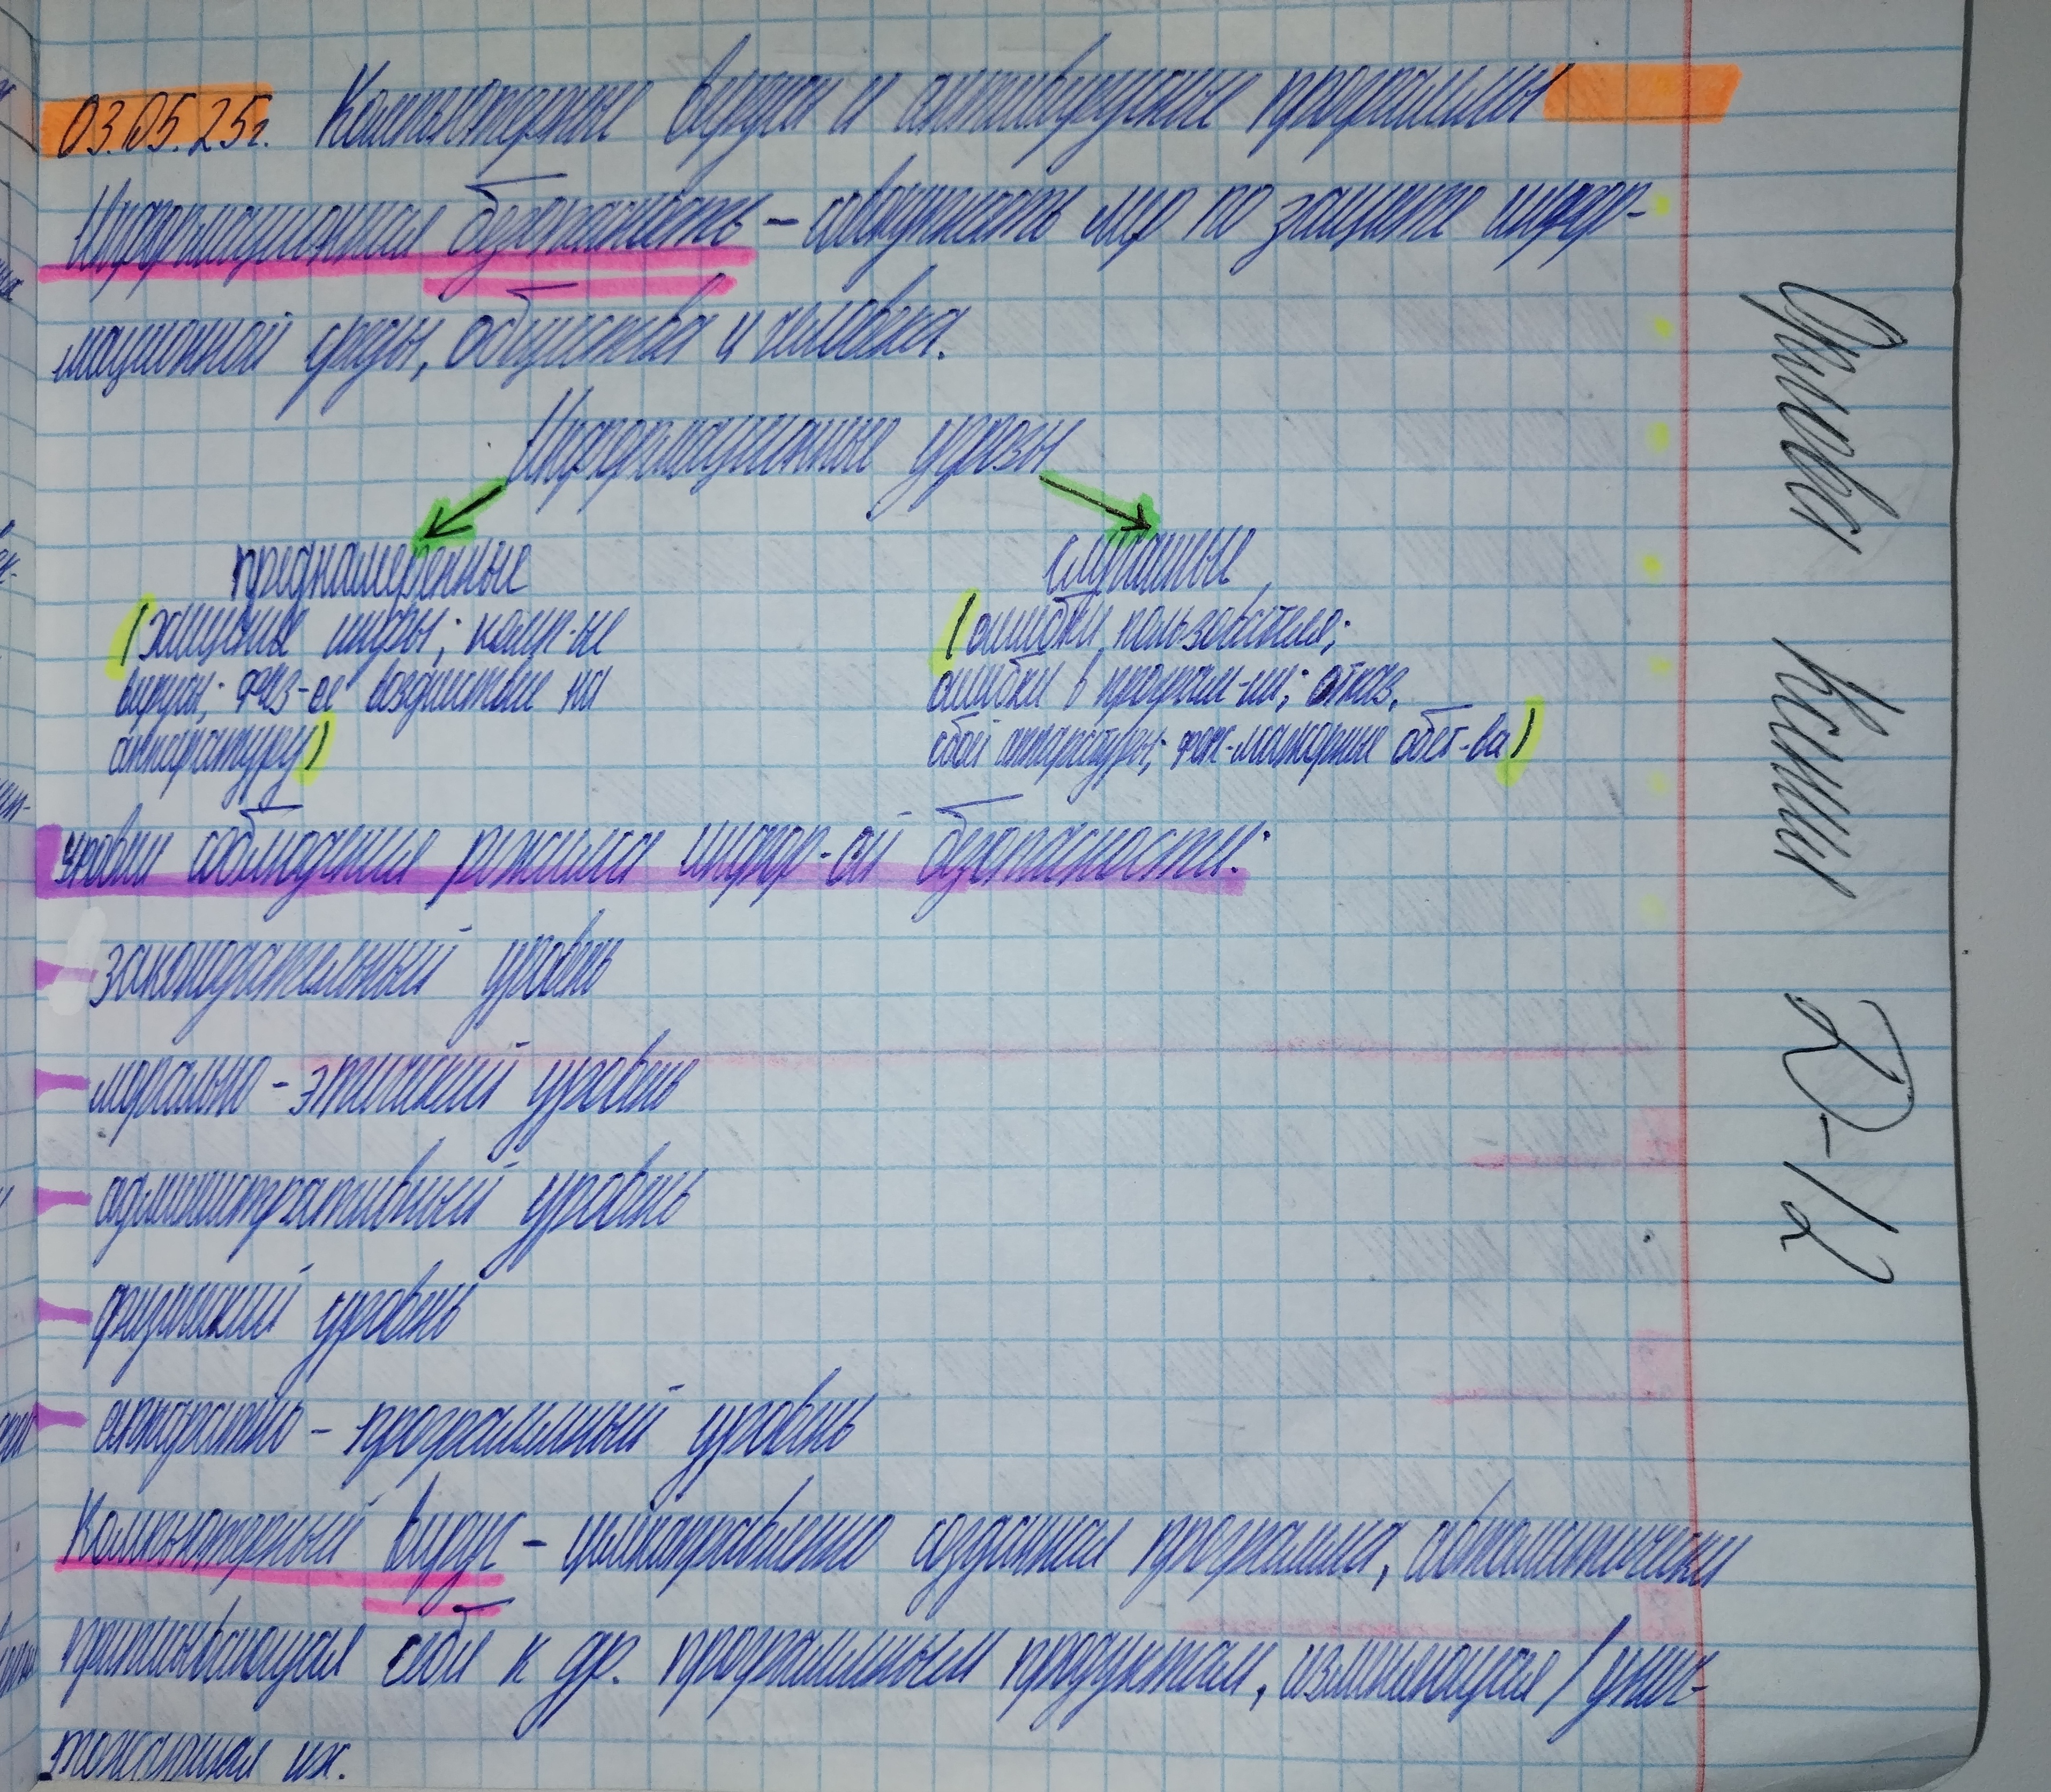 03.05.25г. Компьютерные вирусы и антивирусные программы
Информационная безопасность – совокупность мер по защите инфор-
мационной среды, общества и человека.
Информационные угрозы
преднамеренные
случайные
(хищение инфы; комп-ые
вирусы; физ-ое воздействие на
аппаратуру)
(ошибки пользователя;
ошибки в програм-ии; отказ,
сбой аппаратуры; форс-мажорные обст-ва)
уровни соблюдения режима инфор-ой безопасности:
законодательный уровень
морально-этический уровень
административный уровень
физический уровень
аппаратно-программный уровень
Компьютерный вирус – целенаправленно созданная программа, автоматически
приписывающая себя к др. программным продуктам, изменяющая / унич-
тожающая их.
Ксения
D-12